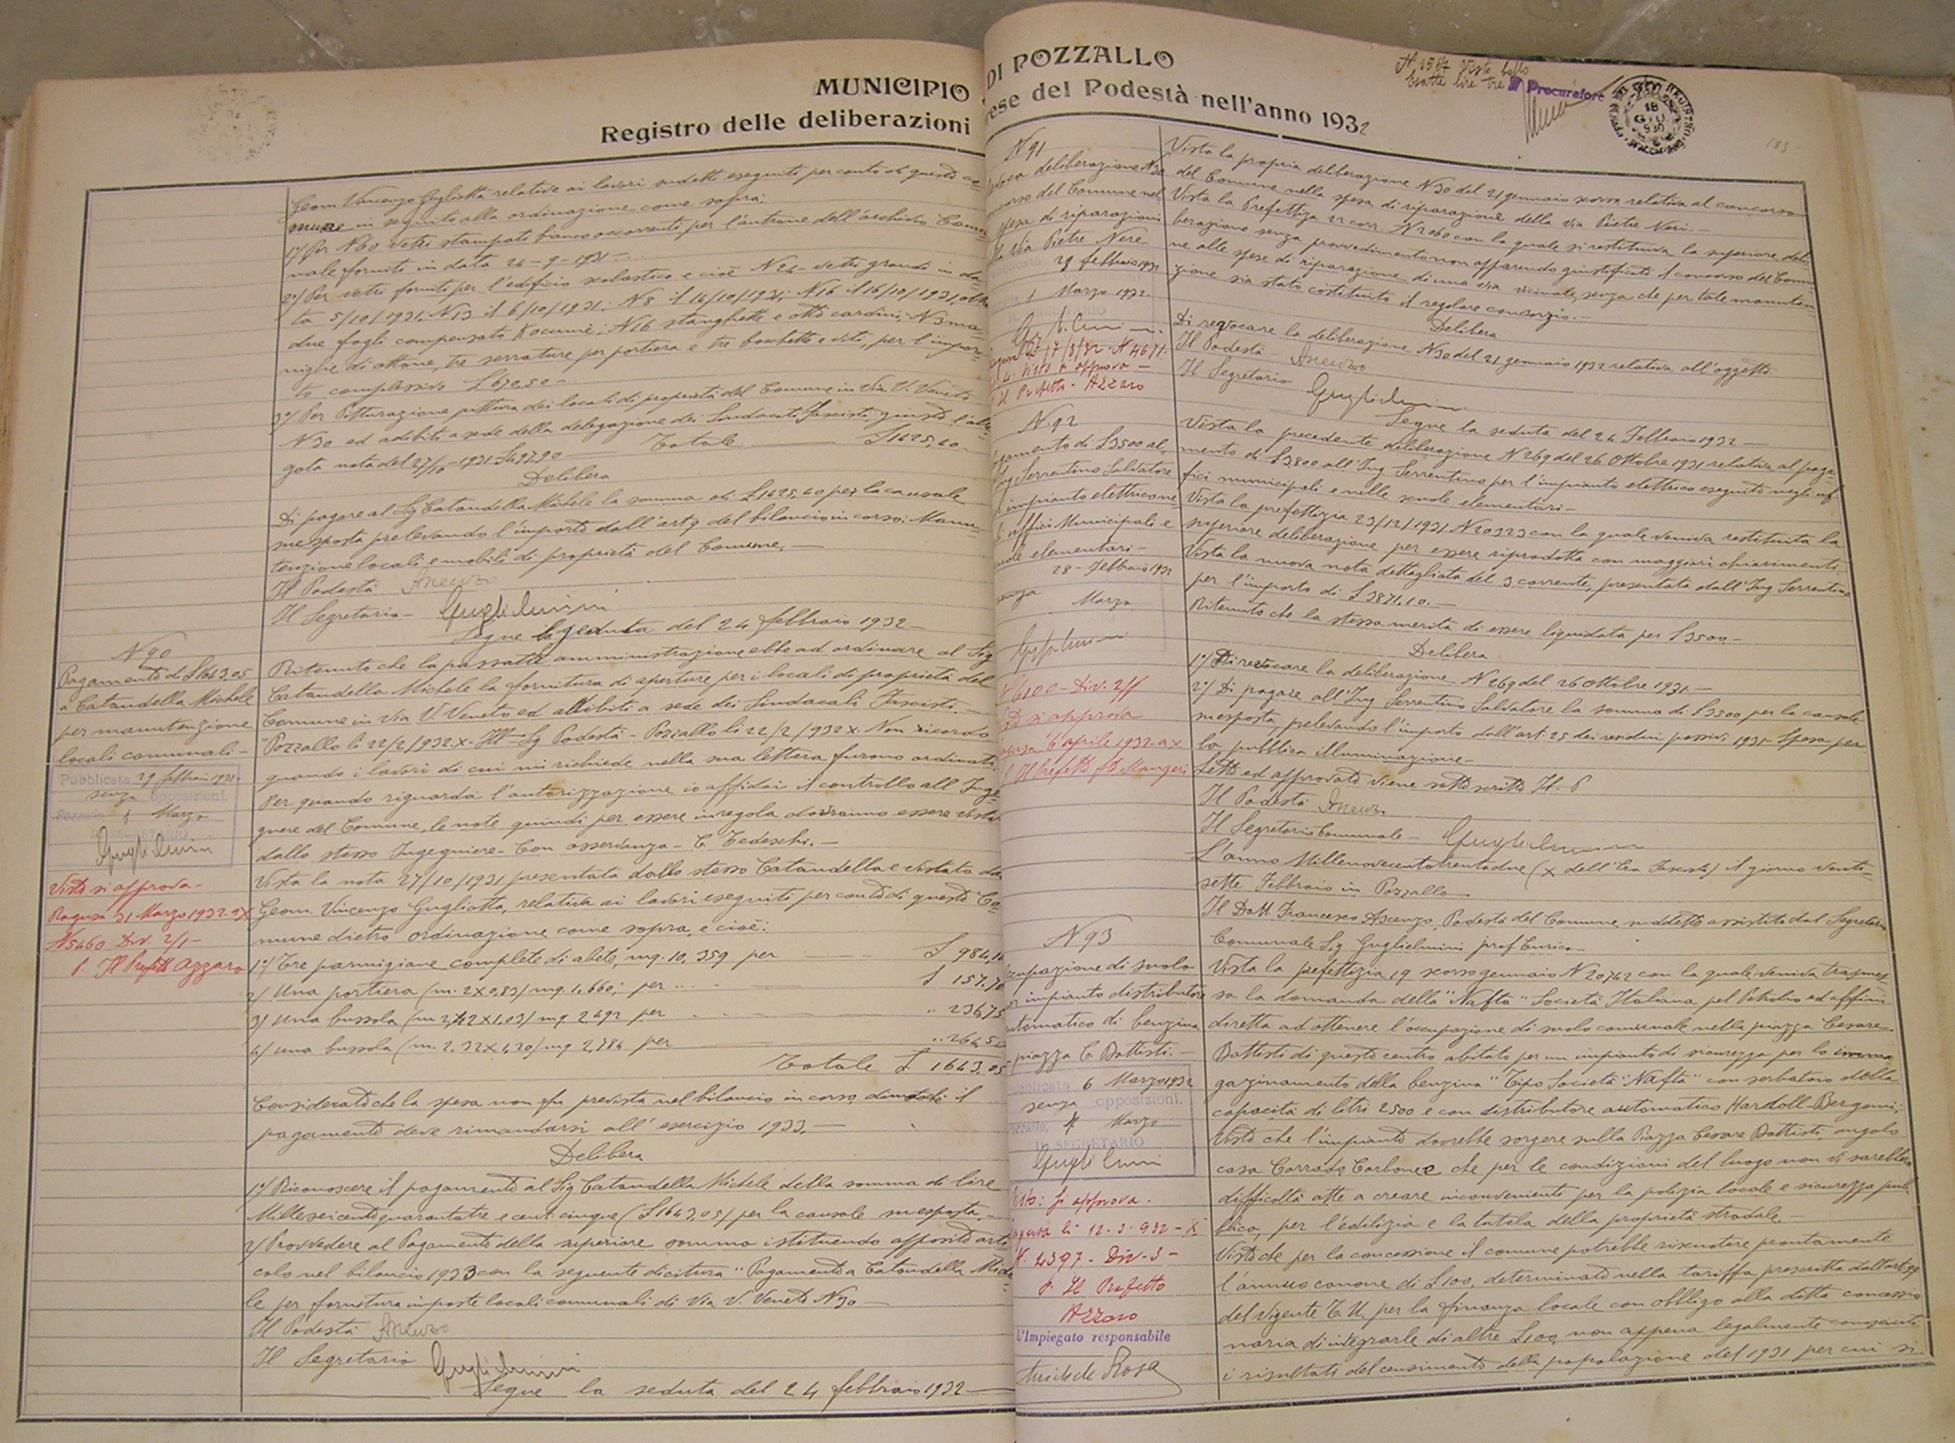 MUNICIPIO DI POZZALLO
Registro delle deliberazioni prese del Podestà nell'anno 1932
Geom. Vincenzo Gugliotta relative ai lavori sudetti eseguiti per conto di questo Co-
mune in seguito alla ordinazione come sopra:
1°/ Per N 60 vetri stampati bianco occorrenti per l'antrone dell'archivio Comu-
nale forniti in data 24-9-1931-
2°/ Per vetri forniti per l'edificio scolastico e cioè N 24 vetri grandi in da-
ta 5/10/1931; N 13 il 6/10/1931; N 8 il 14/10/1931; N 16 il 16/10/1931,
due fogli compensato; N 16 stanghette e otto cardini; N 3 ma-
niglie di ottone, tre serrature per portiera e tre bocchette e viti, per l'impor-
to complessivo £ 630,50-
3°/ Per Pitturazione dei locali di proprietà del Comune in Via V. Veneto
N 30 ed adibiti a sede della delegazione dei Sindacati Fascisti giusta l'alle-
gata nota del 27/10-1931
Totale £ 1425,40-
Delibera
Di pagare al Sig Catandella Michele la somma di £ 1425,40 per la causale
mesposta prelevando l'importo dall'art 9 del bilancio in corso: Manu-
tenzione locali e mobili di proprietà del Comune.-
Il Podestà
Il Segretario- Guglielmini
Segue la seduta del 24 febbraio 1932-
N 90
Pagamento di £ 1643,05
a Catandella Michele
per manutenzione
locali comunali-
Pubblicata 29 febbraio 1932
senza opposizioni.
Pozzallo 1 Marzo
IL SEGRETARIO
Guglielmini
Visto si approva-
Ragusa 31 Marzo 1932 a X
N 5460 Div. 2/1-
p. Il Prefetto Azzaro
Ritenuto che la passata amministrazione ebbe ad ordinare al Sig
Catandella Michele la fornitura di aperture per i locali di proprietà del
Comune in Via V. Veneto ed adibiti a sede dei Sindacati Fascisti.-
"Pozzallo li 22/2/1932 X. Ill- Sig Podestà - Pozzallo li 22/2/1932 X. Non ricordo
quando i lavori di cui mi richiede nella sua lettera furono ordinati.
Per quando riguarda l'autorizzazione io affidai il controllo all'Inge-
gnere del Comune, le note quindi per essere in regola dovranno essere vistate
dallo stesso Ingegniere- Con osservanza- C. Tedeschi.-
Vista la nota 27/10/1931 presentata dallo stesso Catandella e vistata da
Geom. Vincenzo Gugliotta, relativa ai lavori eseguiti per conto di questo Co-
mune dietro ordinazione come sopra, e cioè:
1°/ Tre parmigiane complete di abete, mq. 10,359 per £ 984,10
2/ Una portiera (m. 2X0,83) mq. 1,660; per £ 157,70
3/ Una bussola (m 2,42X1,03) mq 2492 per " 236,75
4/ una bussola (m. 2,32X1,20) mq 2,784 per " 264,50
Totale £ 1643,05
Considerato che la spesa non fu prevista nel bilancio in corso il
pagamento deve rimandarsi all'esercizio 1933.-
Delibera
1°/ Riconoscere il pagamento al Sig Catandella Michele della somma di lire
Milleseicentoquarantatre e cent. cinque (£ 1643,05) per la causale mesposta.-
2/ Provvedere al Pagamento della superiore somma istituendo apposito arti-
colo nel bilancio 1933 con la seguente dicitura "Pagamento a Catandella Miche-
le per fornitura imposte locali comunali di Via V. Veneto N 30-
Il Podestà
Il Segretario Guglielmini
Segue la seduta del 24 febbraio 1932-
N 1567 Visto
Esatte lire tre
Il Procuratore
18
GIU
930
183-
N 91
deliberazione N 30
concorso del Comune nel
spesa di riparazioni
Via Pietre Nere
29 febbraio 1932
1 Marzo 1932
Guglielmini
17/3/32. N 4671-
Visto si approva-
p. Il Prefetto- Azzaro
Vista la propria deliberazione N 30 del 21 gennaio scorso relativa al concorso
del Comune nella spesa di riparazione della via Pietre Neri.-
Vista la Prefettizia 22 corr. N 2060 con la quale si restituiva la superiore deli-
berazione senza provvedimento non apparendo giustificato il concorso del Comu-
ne alle spese di riparazione di una via vicinale, senza che per tale manuten-
zione sia stato costituito il regolare consorzio.-
Delibera
Di revocare la deliberazione N 30 del 21 gennaio 1932 relativa all'oggetto.
Il Podestà-
Il Segretario Guglielmini
Segue la seduta del 24 Febbraio 1932-
N 92
Pagamento di £ 3500 al-
l'Ing Serrentino Salvatore
impianto elettrico ne
gli uffici Municipali e
scuole elementari-
28- Febbraio 1932
senza
Marzo
Guglielmini
N 6100- Div. 2/1
si approva
Ragusa 6 aprile 1932- a X
p. Il Prefetto
Vista la precedente deliberazione N 269 del 26 Ottobre 1931 relativa al paga-
mento di £ 3800 all'Ing Serrentino per l'impianto elettrico eseguito negli uf-
fici municipali e nelle scuole elementari-
Vista la prefettizia 23/12/1931 N 20323 con la quale veniva restituita la
superiore deliberazione per essere riprodotta con maggiori chiarimenti.
Vista la nuova nota dettagliata del 3 corrente, presentata dall'Ing Serrentino
per l'importo di £ 3871,10.-
Ritenuto che la stessa merita di essere liquidata per £ 3500.-
Delibera
1°/ Di revocare la deliberazione N 269 del 26 Ottobre 1931.-
2°/ Di pagare all'Ing Serrentino Salvatore la somma di £ 3500 per la causale
mesposta, prelevando l'importo dall'art. 25 dei residui passivi 1931- Spesa per
la pubblica illuminazione-
Letto ed approvato viene sottoscritto
Il Podestà
Il Segretario Comunale- Guglielmini
L'anno Millenovecentotrentadue (X dell'Era Fascista) il giorno venti-
sette Febbraio in Pozzallo-
Il Dott. Francesco Ascenzo, Podestà del Comune suddetto assistito dal Segretario
Comunale Sig Guglielmini prof Enrico-
N 93
Occupazione di suolo
per impianto distributore
automatico di benzina
piazza C. Battisti.-
Pubblicata 6 Marzo 1932
senza opposizioni.
Pozzallo, Marzo
IL SEGRETARIO
Guglielmini
Visto: Si approva.
Ragusa li 12.3.932- X
N. 4397- Div- 3-
p. Il Prefetto
Azzaro
L'Impiegato responsabile
Rosa
Vista la prefettizia 19 scorso gennaio N 20742 con la quale veniva trasmes-
sa la domanda della "Nafta" Società Italiana pel Petrolio ed affini
diretta ad ottenere l'occupazione di suolo comunale nella piazza Cesare
Battisti di questo centro abitato per un impianto di sicurezza per lo imma
gazzinamento della benzina "Tipo Società "Nafta" con serbatoio della
capacità di litri 2500 e con distributore automatico Hardoll-Bergomi;
Visto che l'impianto dovrebbe sorgere sulla Piazza Cesare Battisti angolo
casa Corrado Carbone e che per le condizioni del luogo non vi sarebbero
difficoltà atte a creare inconvenienti per la polizia locale e sicurezza pub-
blica, per l'edilizia e la tutela della proprietà stradale.-
Visto che per la concessione il comune potrebbe riscuotere prontamente
l'annuo canone di £ 100, determinato nella tariffa prescritta dall'art
del vigente T. U. per la finanza locale con obbligo alla ditta concessio
naria di integrarle di altre £ 100 non appena legalmente conosciuti
i risultati del censimento della popolazione del 1931 per cui si